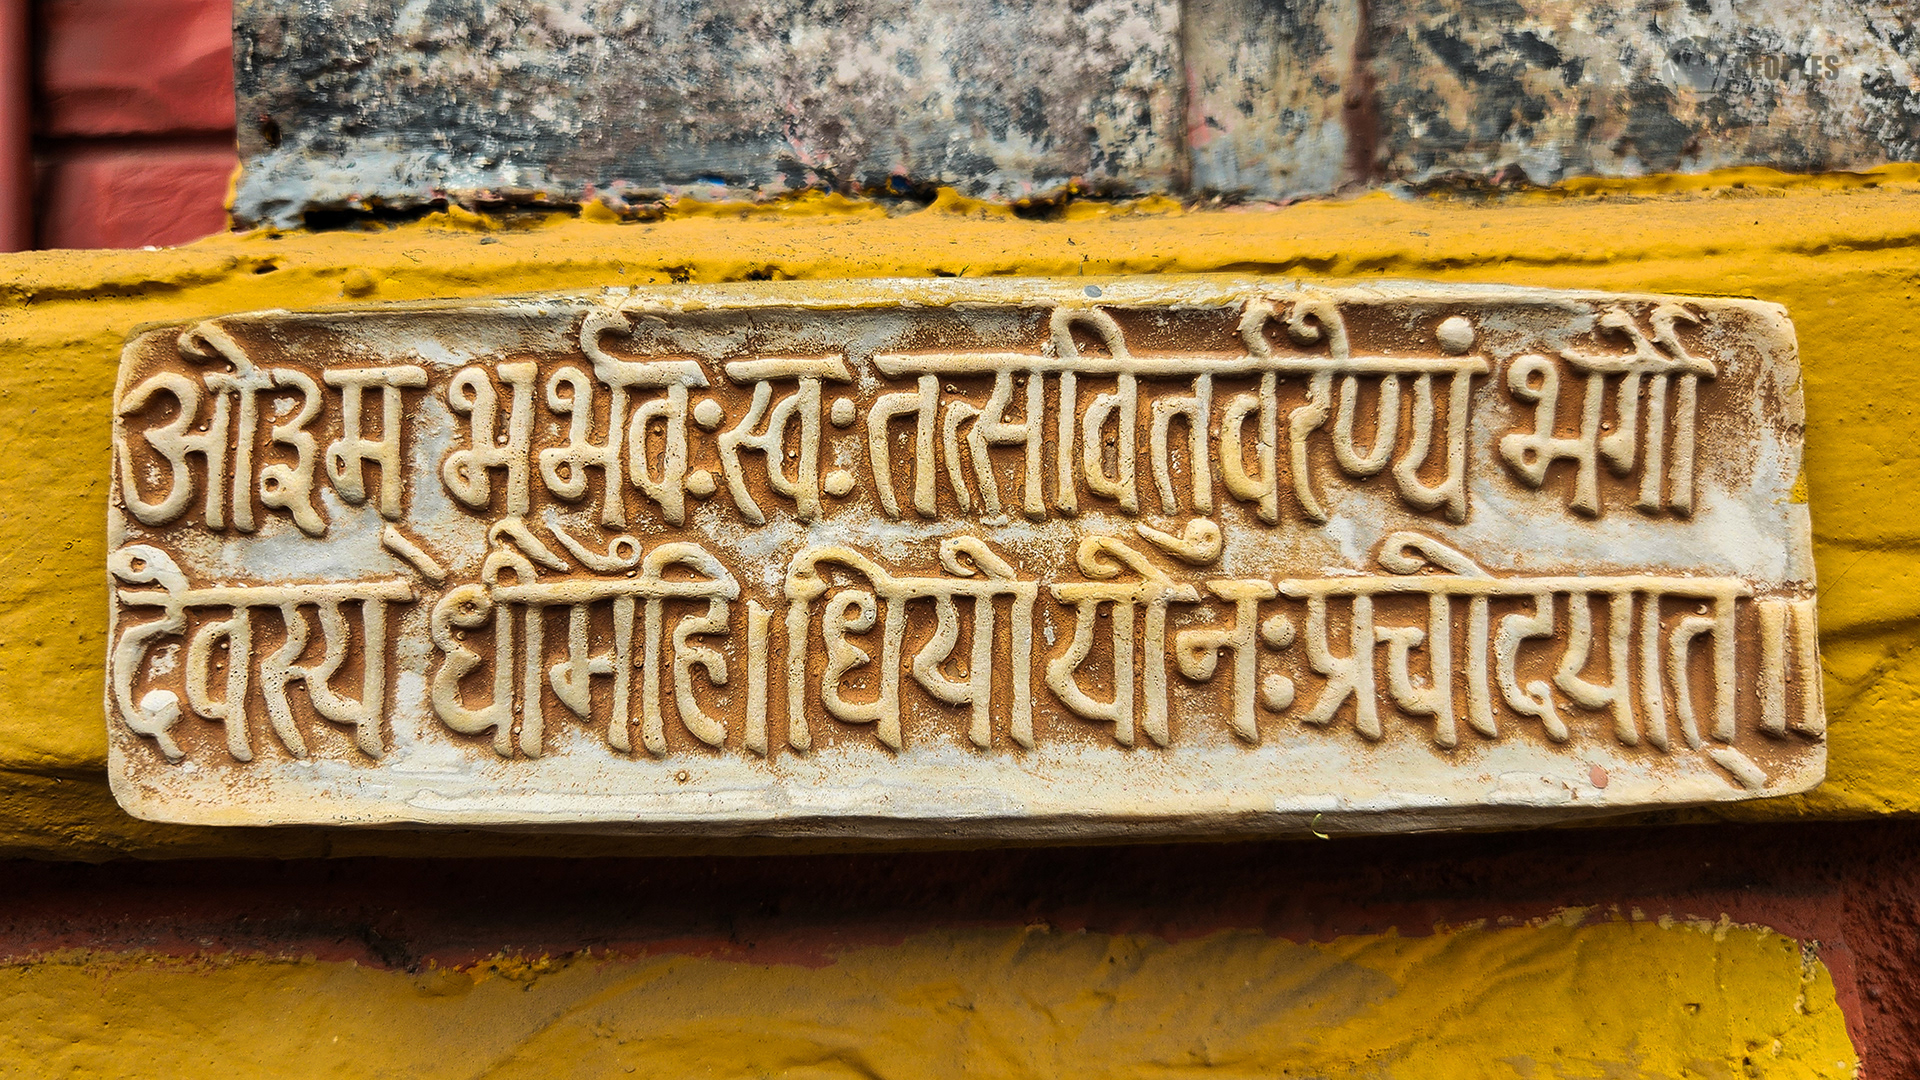 PEOPLES
ओ३म् भूर्भुवः स्वः तत्सवितुर्वरेण्यं भर्गो
देवस्य धीमहि। धियो यो नः प्रचोदयात्॥